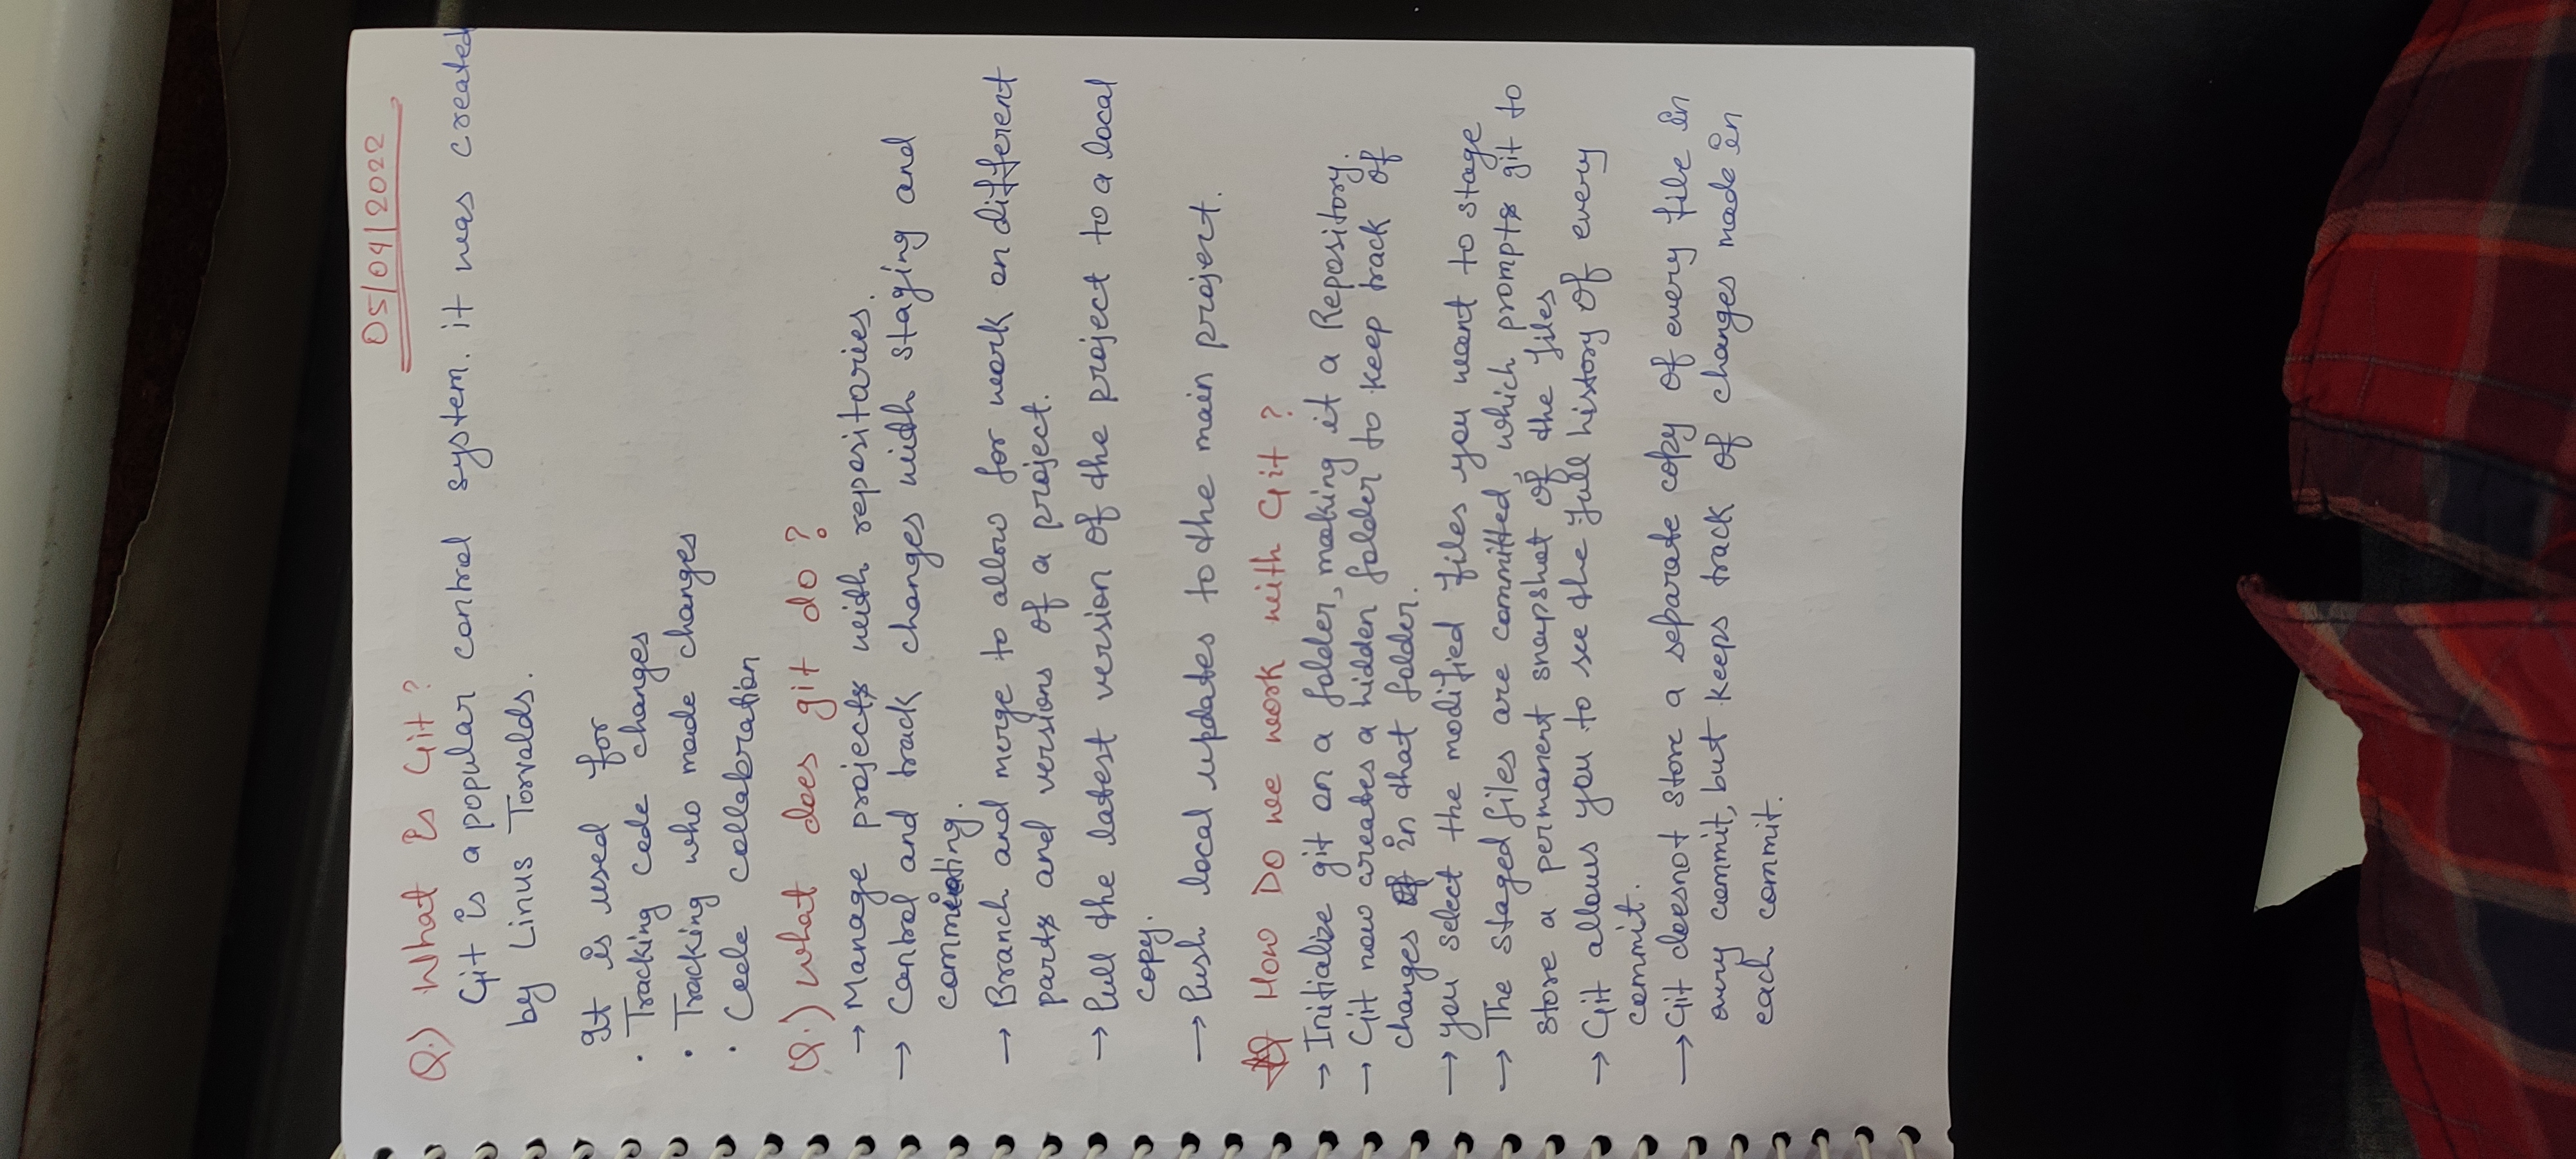 05/04/2022
Q.) What is Git?
Git is a popular control system. it was created
by Linus Torvalds.
It is used for
• Tracking code changes
• Tracking who made changes
• Code collabration
Q.) what does git do?
→ Manage projects with repositaries.
→ Control and track changes with staging and
commiting.
→ Branch and merge to allow for work on different
parts and versions of a project.
→ Pull the latest version of the project to a local
copy.
→ Push local updates to the main project.
How Do we work with Git?
→ Initialize git on a folder, making it a Repository.
→ Git now creates a hidden folder to keep track of
changes in that folder.
→ you select the modified files you want to stage
→ The staged files are committed, which prompts git to
store a permanent snapshot of the files
→ Git allows you to see the full history of every
commit.
→ Git doesnot store a separate copy of every file in
every commit, but keeps track of changes made in
each commit.